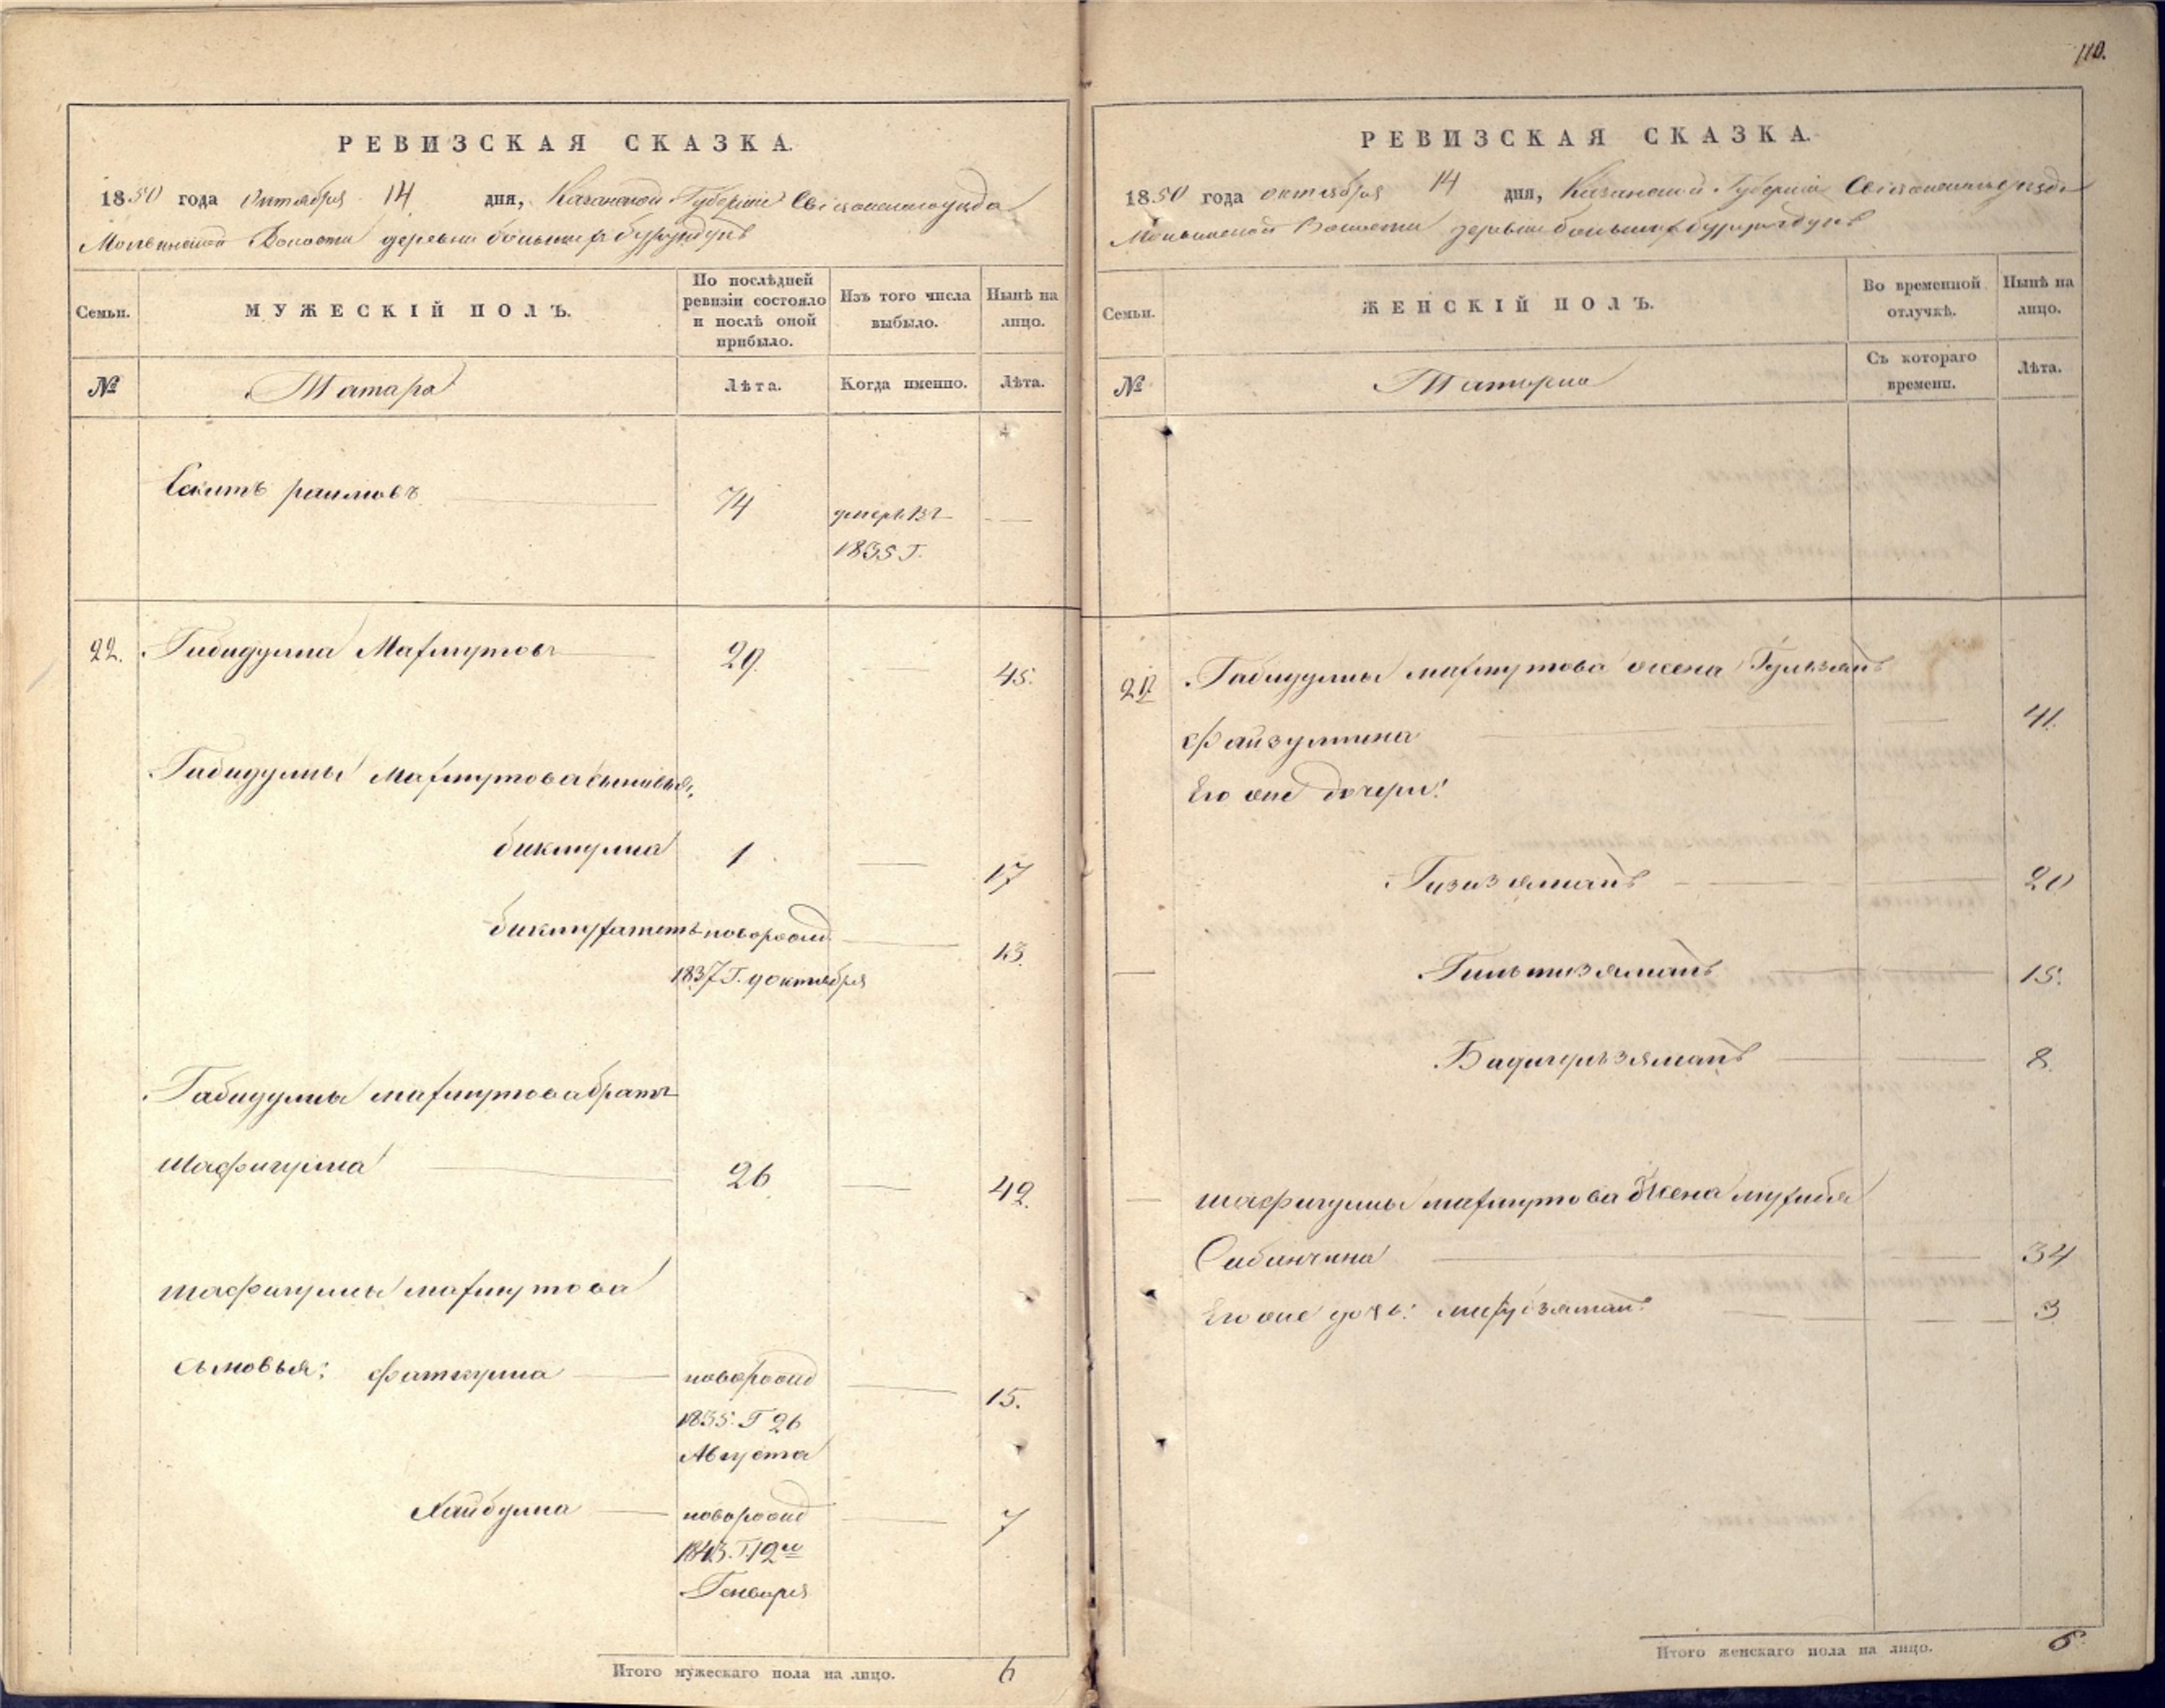 110.
РЕВИЗСКАЯ СКАЗКА.
1850 года Октября 14 дня, Казанской Губернiи Свiяжскаго уезда
Молвинской Волости деревни больших бурундук
Семьи. МУЖЕСКІЙ ПОЛЪ. По послѣдней ревизіи состояло и послѣ оной прибыло. Изъ того числа выбыло. Нынѣ на лицо.
№ Татара Лѣта. Когда именно. Лѣта.
раимовъ 74 умеръ въ —
1835 Г.
22. Габидулла Махмутовъ 29. — 45.
Габидуллы Махмутова сыновья:
биктулла 1 — 17
новорожд — 13.
1837 Г. 9 октября
Габидуллы махмутова братъ
шафигулла 26 — 42.
шафигуллы махмутова
сыновья: фаткулла новорожд — 15.
1835. Г 26
Августа
Хайбулла новорожд — 7
1843. Г. 12го
Генваря
Итого мужескаго пола на лицо. 6
РЕВИЗСКАЯ СКАЗКА.
1850 года октября 14 дня, Казанской Губернiи Свiяжскаго уезда
Молвинской Волости деревни больших бурундук
Семьи. ЖЕНСКІЙ ПОЛЪ. Во временной отлучкѣ. Нынѣ на лицо.
№ Татарки Съ котораго времени. Лѣта.
22 Габидуллы махмутова жена Гульзянъ
файзуллина — 41.
Его же дочери:
Гизизяманъ — 20
— 15.
— 8.
— шафигуллы махмутова жена
Сабанчина — 34
Его же дочь: — 3
Итого женскаго пола на лицо. 6